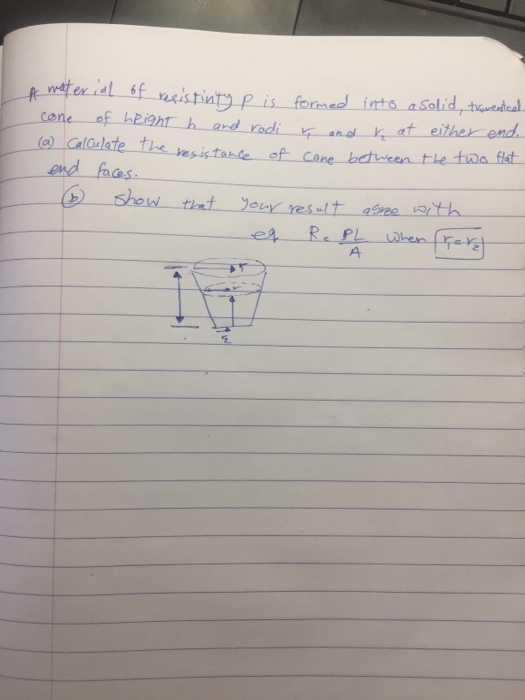 A material of resistinty ρ is formed into a solid, truventical
cone of height h and radi r₁ and r₂ at either end.
(a) Calculate the resistance of Cone between the two flat
end faces.
(b) Show that your result agree with
eq R = ρL/A when r₁=r₂
r
r
r₂